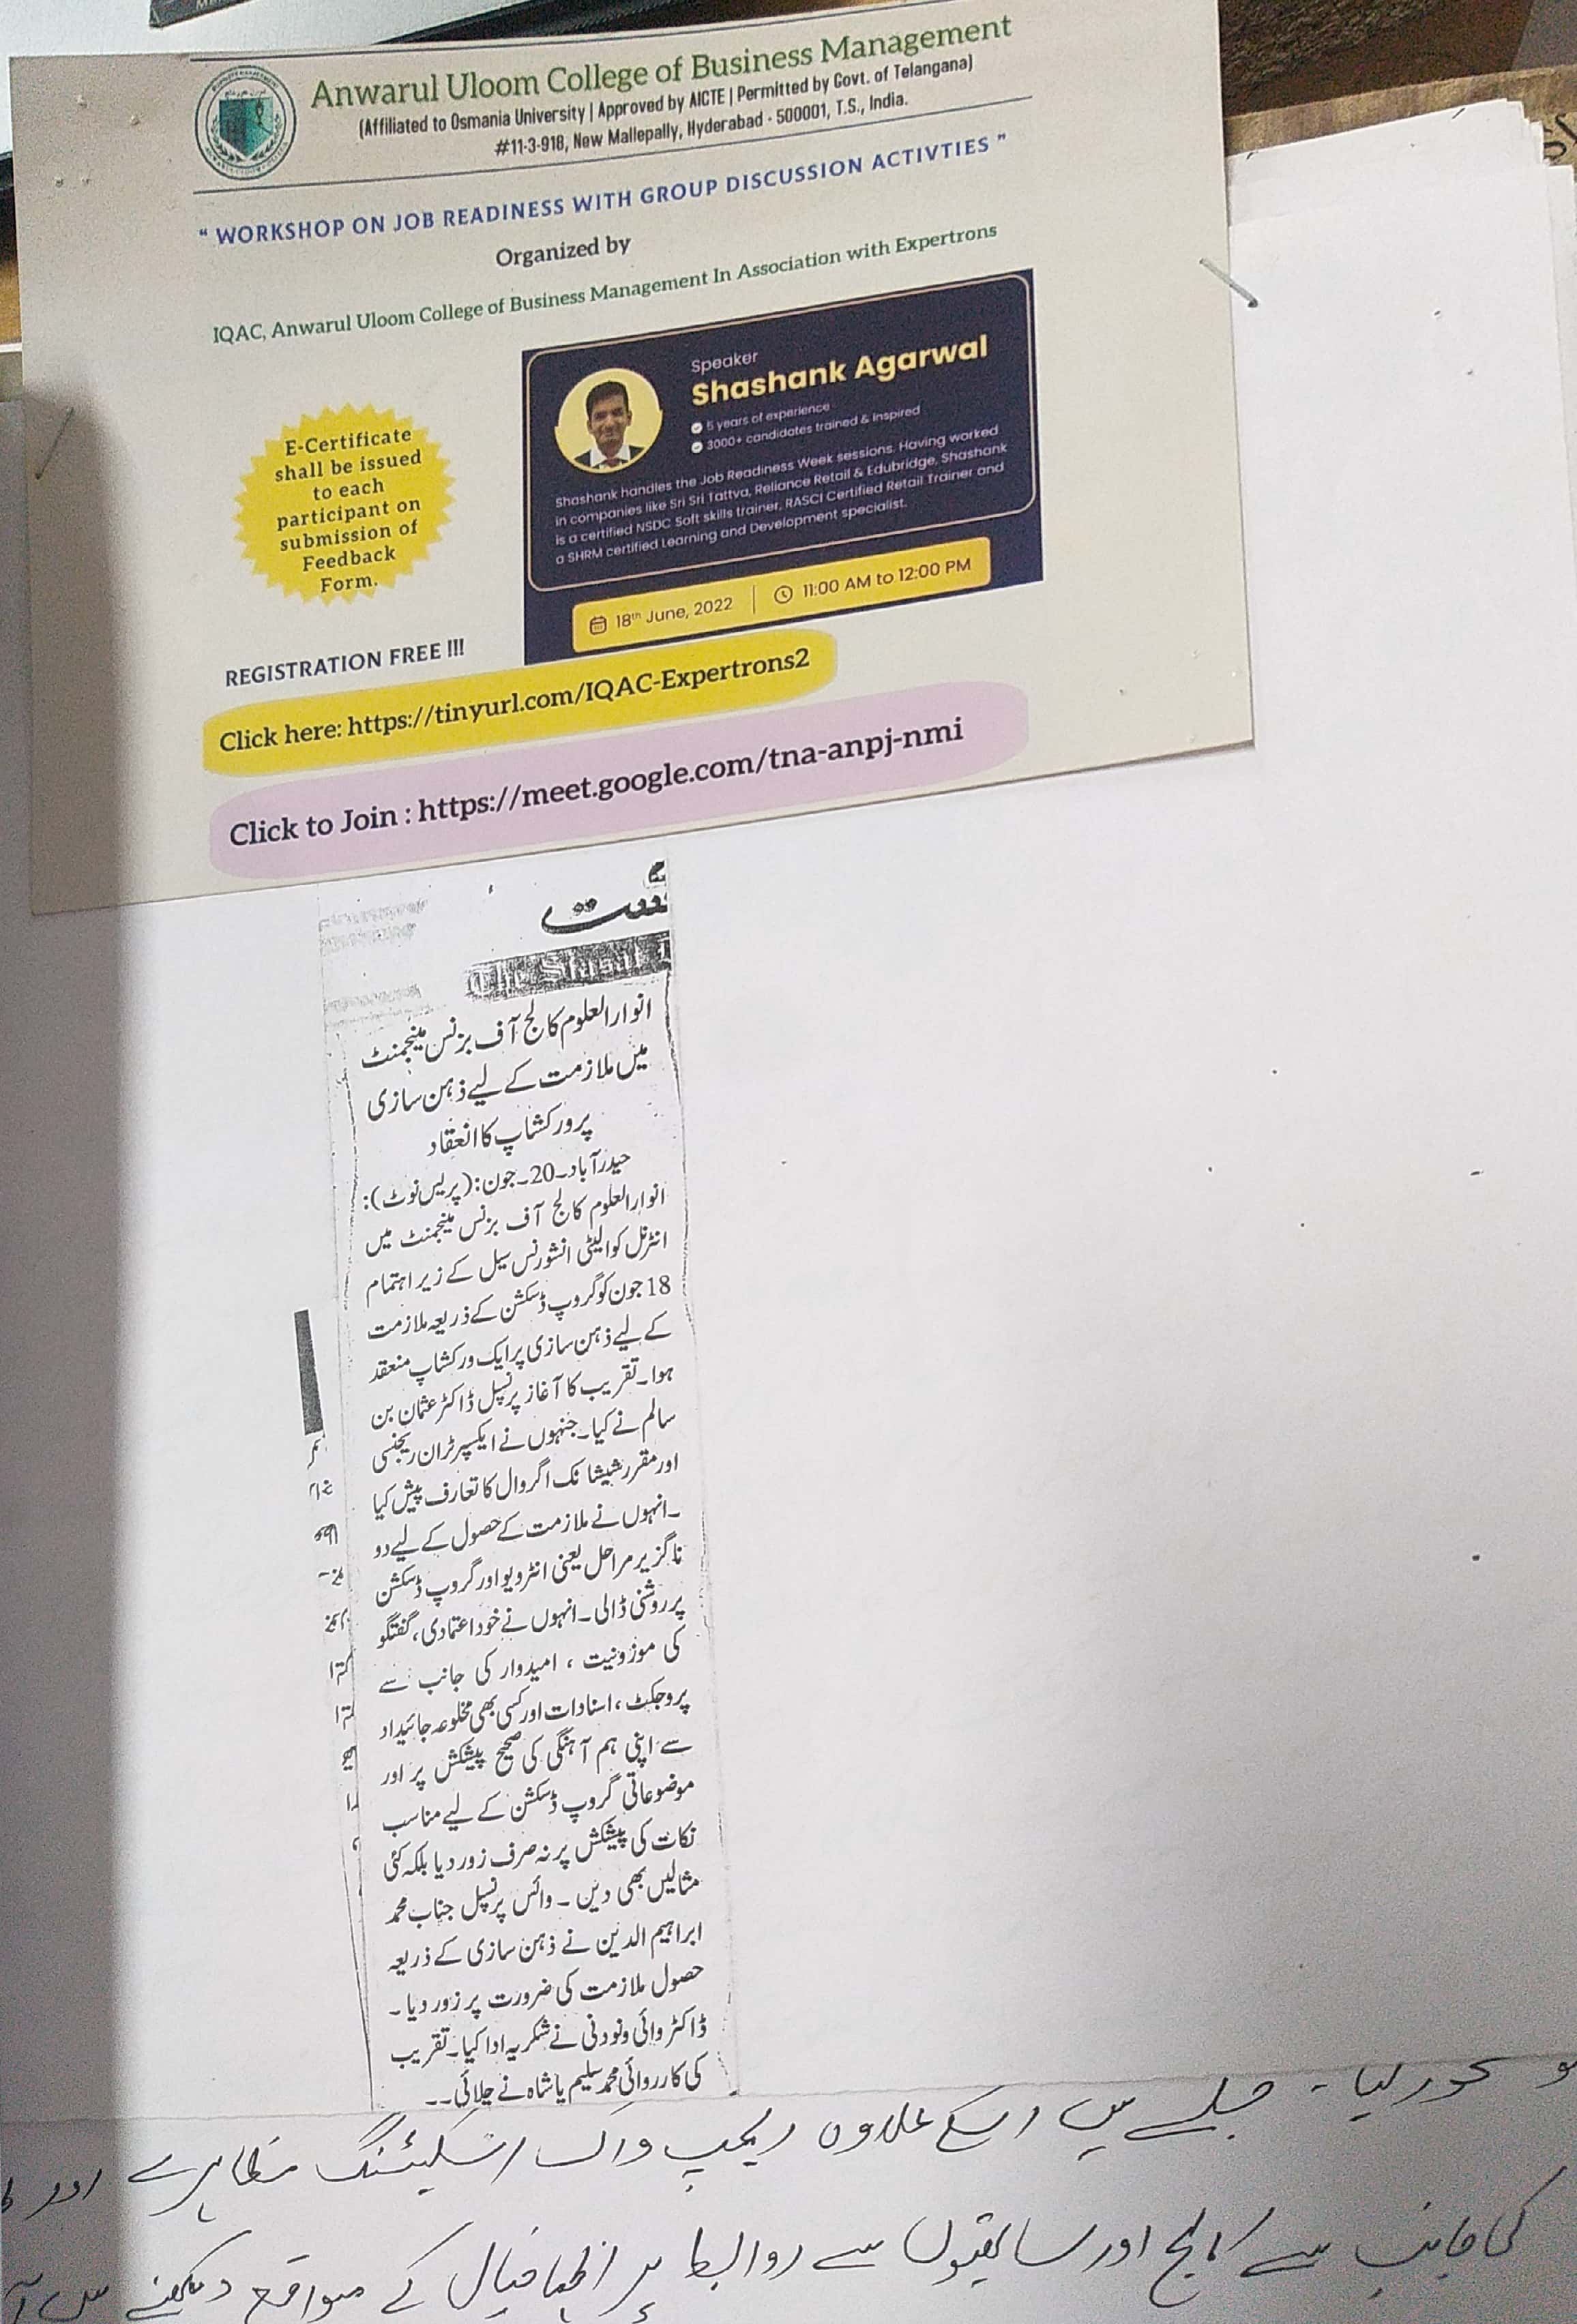 Anwarul Uloom College of Business Management
(Affiliated to Osmania University | Approved by AICTE | Permitted by Govt. of Telangana)
#11-3-918, New Mallepally, Hyderabad - 500001, T.S., India.
“ WORKSHOP ON JOB READINESS WITH GROUP DISCUSSION ACTIVTIES ”
Organized by
IQAC, Anwarul Uloom College of Business Management In Association with Expertrons
E-Certificate
shall be issued
to each
participant on
submission of
Feedback
Form.
Speaker
Shashank Agarwal
5 years of experience
3000+ candidates trained & inspired
Shashank handles the Job Readiness Week sessions. Having worked
in companies like Sri Sri Tattva, Reliance Retail & Edubridge, Shashank
is a certified NSDC Soft skills trainer, RASCI Certified Retail Trainer and
a SHRM certified Learning and Development specialist.
18th June, 2022 | 11:00 AM to 12:00 PM
REGISTRATION FREE !!!
Click here: https://tinyurl.com/IQAC-Expertrons2
Click to Join : https://meet.google.com/tna-anpj-nmi
The
انوارالعلوم کالج آف بزنس مینجمنٹ
میں ملازمت کے لیے ذہن سازی
پر ورکشاپ کا انعقاد
حیدرآباد۔20۔جون:(پریس نوٹ):
انوارالعلوم کالج آف بزنس مینجمنٹ میں
انٹرنل کوالیٹی انشورنس سیل کے زیر اہتمام
18 جون کو گروپ ڈسکشن کے ذریعہ ملازمت
کے لیے ذہن سازی پر ایک ورکشاپ منعقد
ہوا۔تقریب کا آغاز پرنسپل ڈاکٹر عثمان بن
سالم نے کیا۔جنہوں نے ایکسپرٹران ریجنسی
اور مقرر شیشانک اگروال کا تعارف پیش کیا
۔انہوں نے ملازمت کے حصول کے لیے دو
ناگزیر مراحل یعنی انٹرویو اور گروپ ڈسکشن
پر روشنی ڈالی۔انہوں نے خود اعتمادی، گفتگو
کی موزونیت ، امیدوار کی جانب سے
پروجکٹ، اسنادات اور کسی بھی مخلوعہ جائیداد
سے اپنی ہم آہنگی کی صحیح پیشکش پر اور
موضوعاتی گروپ ڈسکشن کے لیے مناسب
نکات کی پیشکش پر نہ صرف زور دیا بلکہ کئی
مثالیں بھی دیں ۔ وائس پرنسپل جناب محمد
ابراہیم الدین نے ذہن سازی کے ذریعہ
حصول ملازمت کی ضرورت پر زور دیا ۔
ڈاکٹر وائی ونودنی نے شکریہ ادا کیا۔تقریب
کی کارروائی محمد سلیم پاشاہ نے چلائی۔۔
جلسے میں اسکے علاوہ ریمپ واک اسکیٹنگ مظاہرے اور
کی جانب سے کالج اور ساتھیوں سے روابط پر اظہار خیال کے مواقع دیکھنے میں